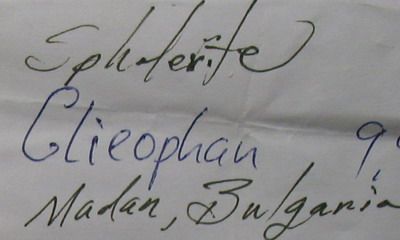 Sphalerite
Clieophan 9
Madan, Bulgaria